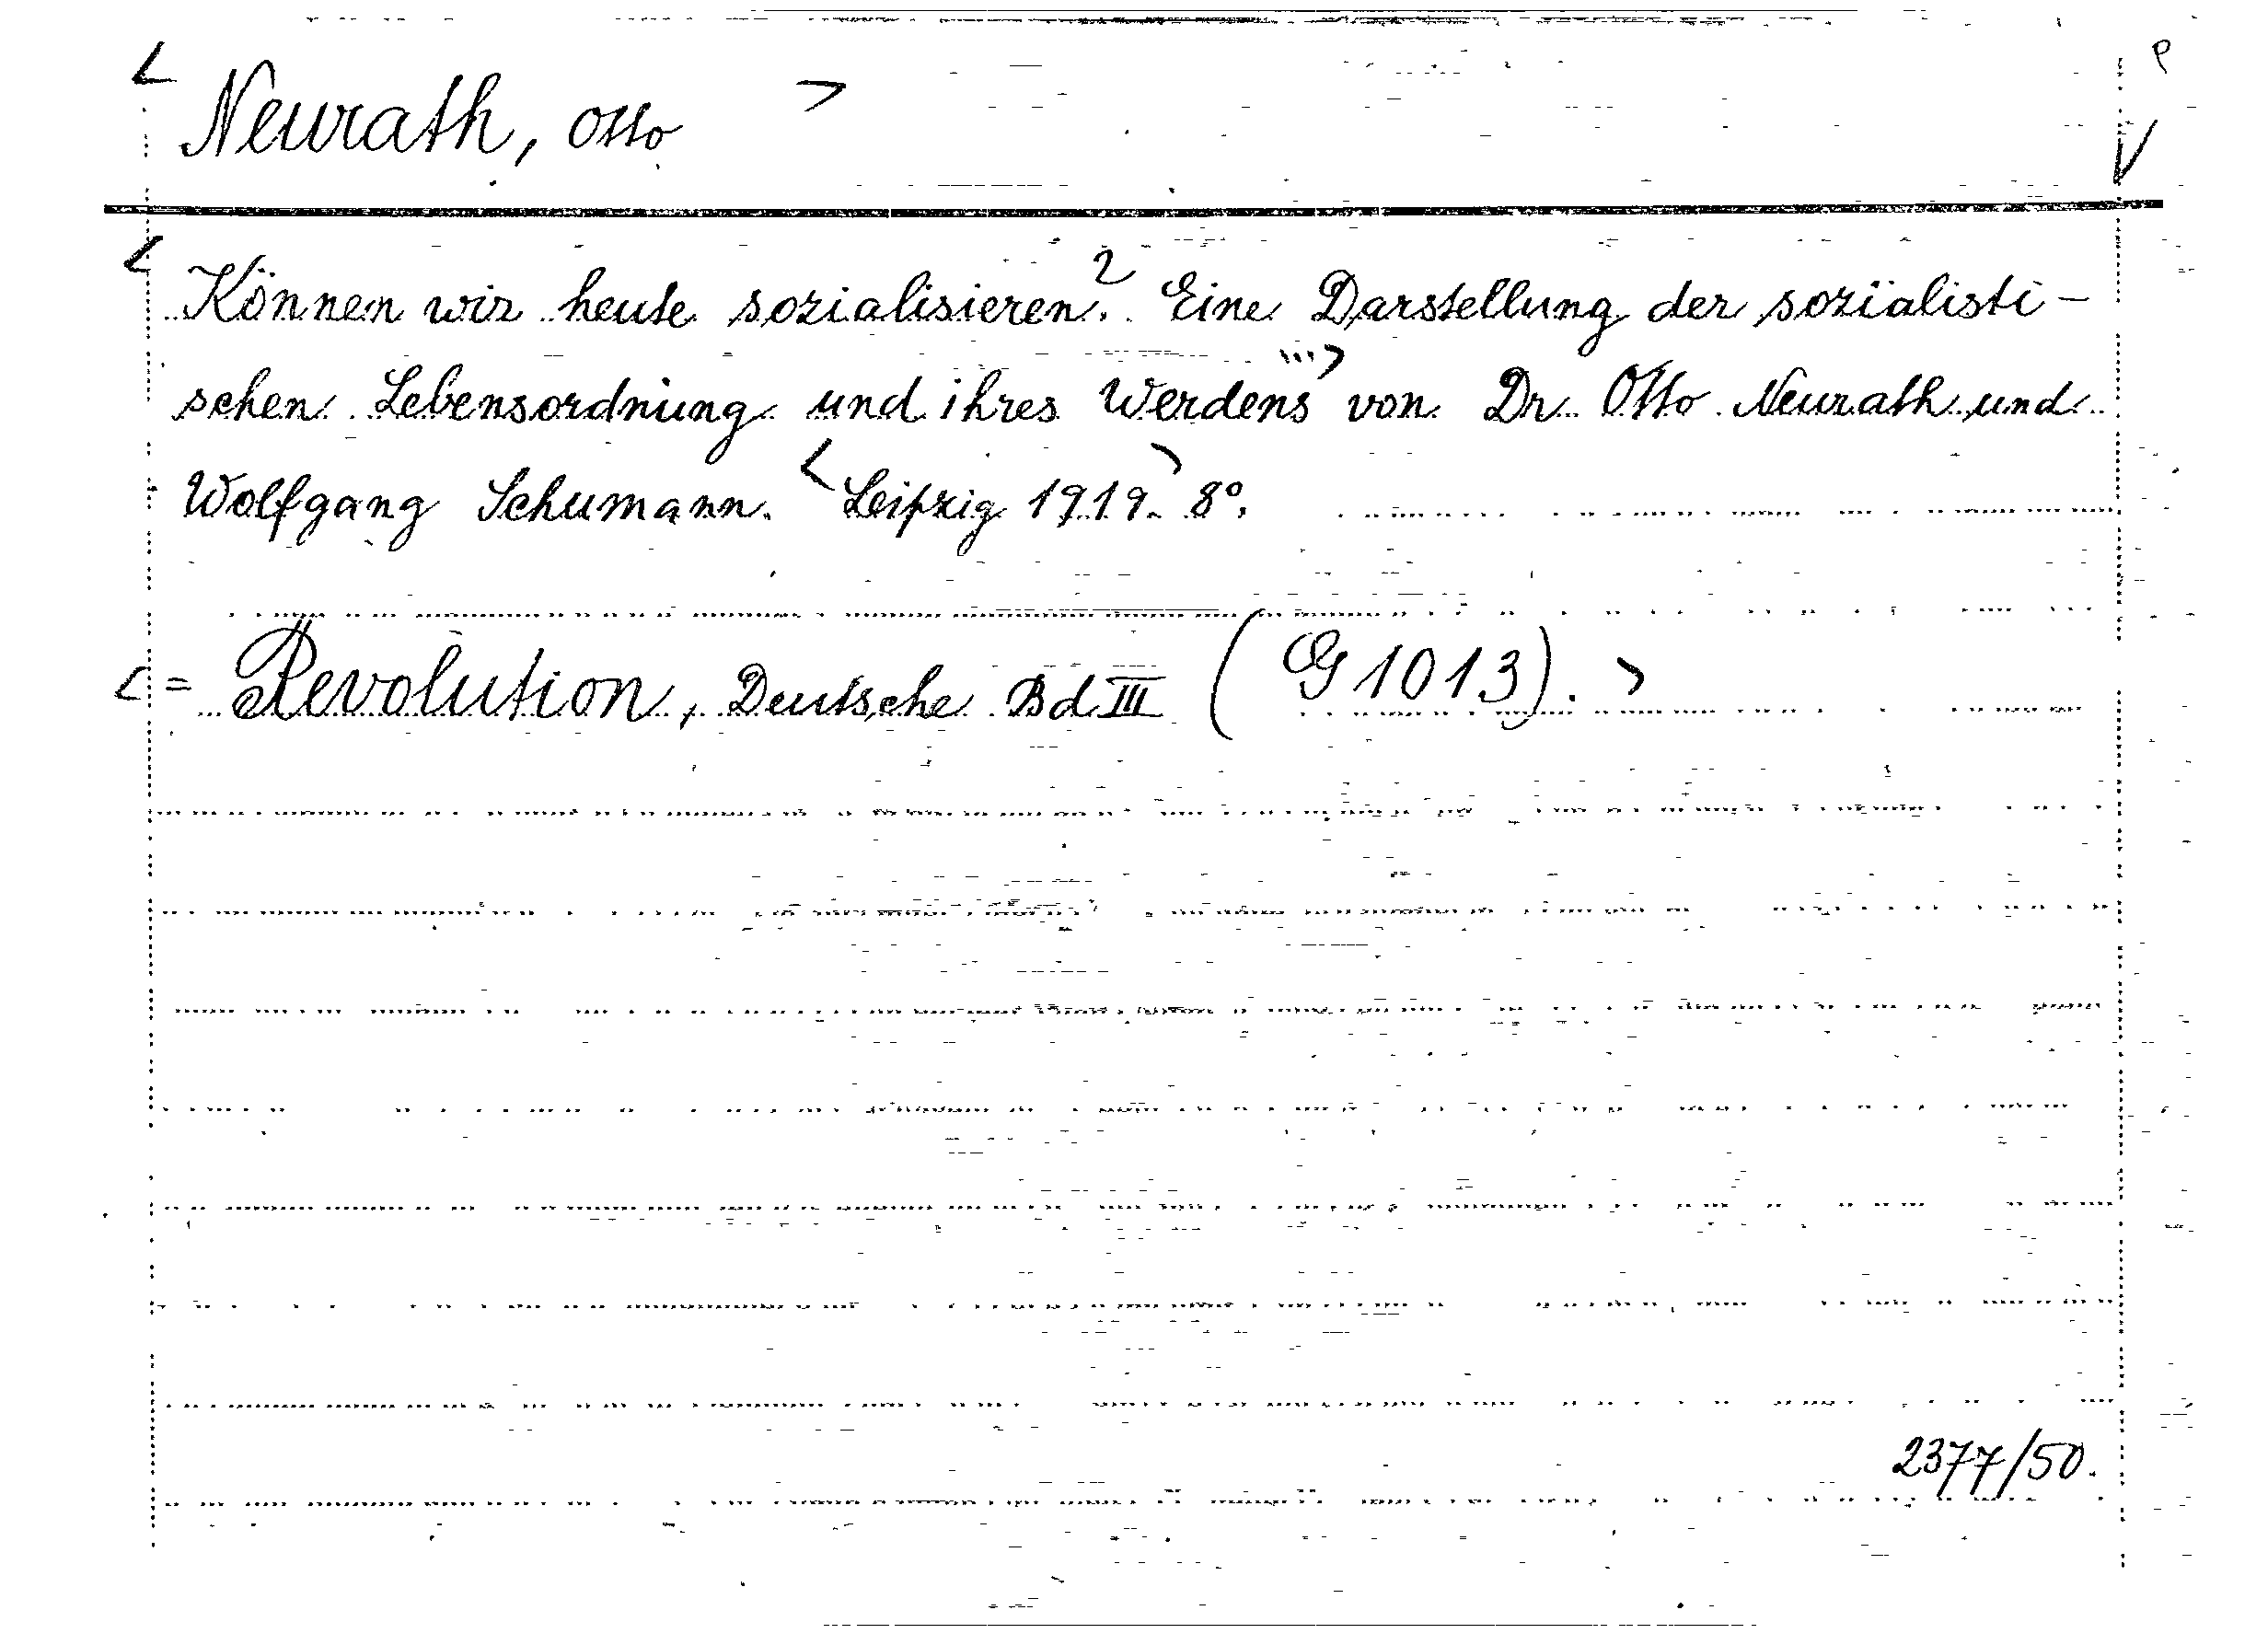 < Neurath, Otto >
< Können wir heute sozialisieren? Eine Darstellung der sozialisti-
schen Lebensordnung und ihres Werdens ...> von Dr. Otto Neurath und
Wolfgang Schumann. < Leipzig 1919. > 8°.
< = Revolution, Deutsche Bd III (G 1013). >
2377/50.